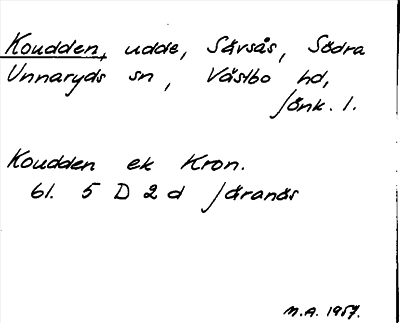 Koudden, udde, Särsås, Södra
Unnaryds sn, Västbo hd,
Jönk. l.
Koudden ek Kron.
bl. 5 D 2 d Järanäs
M.A. 1957.